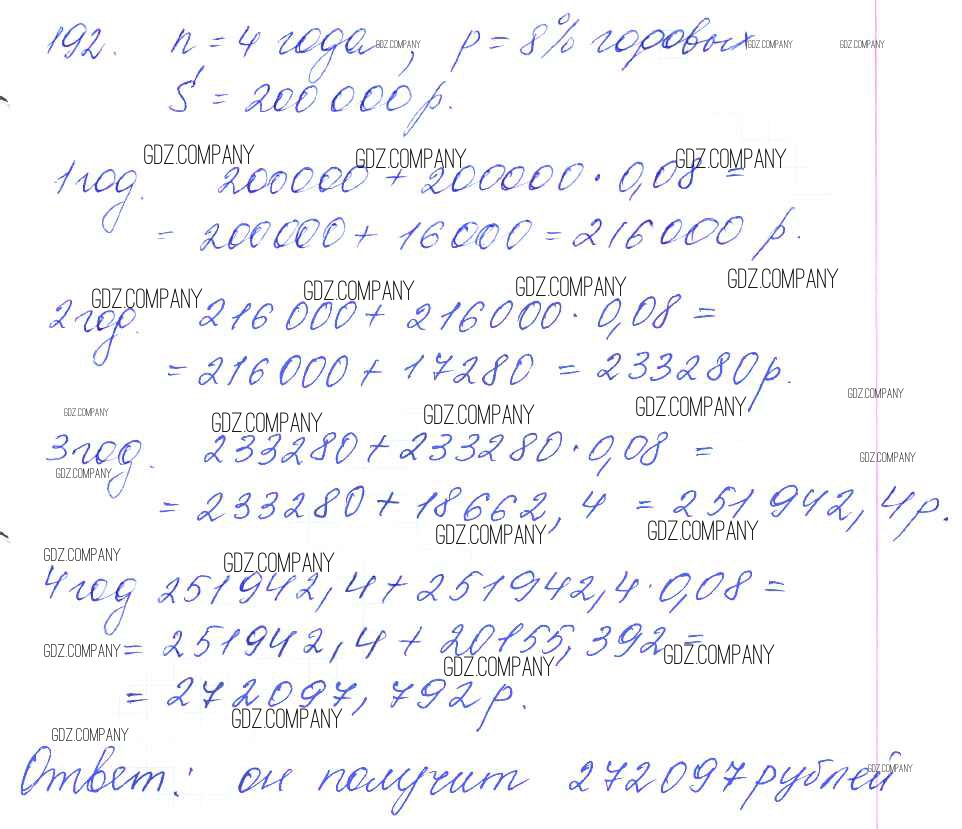 192. n = 4 года, p = 8% годовых
GDZ.COMPANY GDZ.COMPANY GDZ.COMPANY
S = 200 000 р.
GDZ.COMPANY GDZ.COMPANY GDZ.COMPANY
1 год. 200000 + 200000 · 0,08 =
= 200000 + 16000 = 216000 р.
GDZ.COMPANY GDZ.COMPANY GDZ.COMPANY GDZ.COMPANY
2 год. 216 000 + 216 000 · 0,08 =
= 216 000 + 17280 = 233280 р.
GDZ.COMPANY
GDZ.COMPANY GDZ.COMPANY GDZ.COMPANY GDZ.COMPANY
3 год. 233280 + 233280 · 0,08 =
GDZ.COMPANY GDZ.COMPANY
= 233280 + 18662,4 = 251 942,4 р.
GDZ.COMPANY GDZ.COMPANY
GDZ.COMPANY GDZ.COMPANY
4 год 251942,4 + 251942,4 · 0,08 =
GDZ.COMPANY = 251942,4 + 20155,392 =
GDZ.COMPANY GDZ.COMPANY
= 272097,792 р.
GDZ.COMPANY GDZ.COMPANY
Ответ: он получит 272097 рублей
GDZ.COMPANY